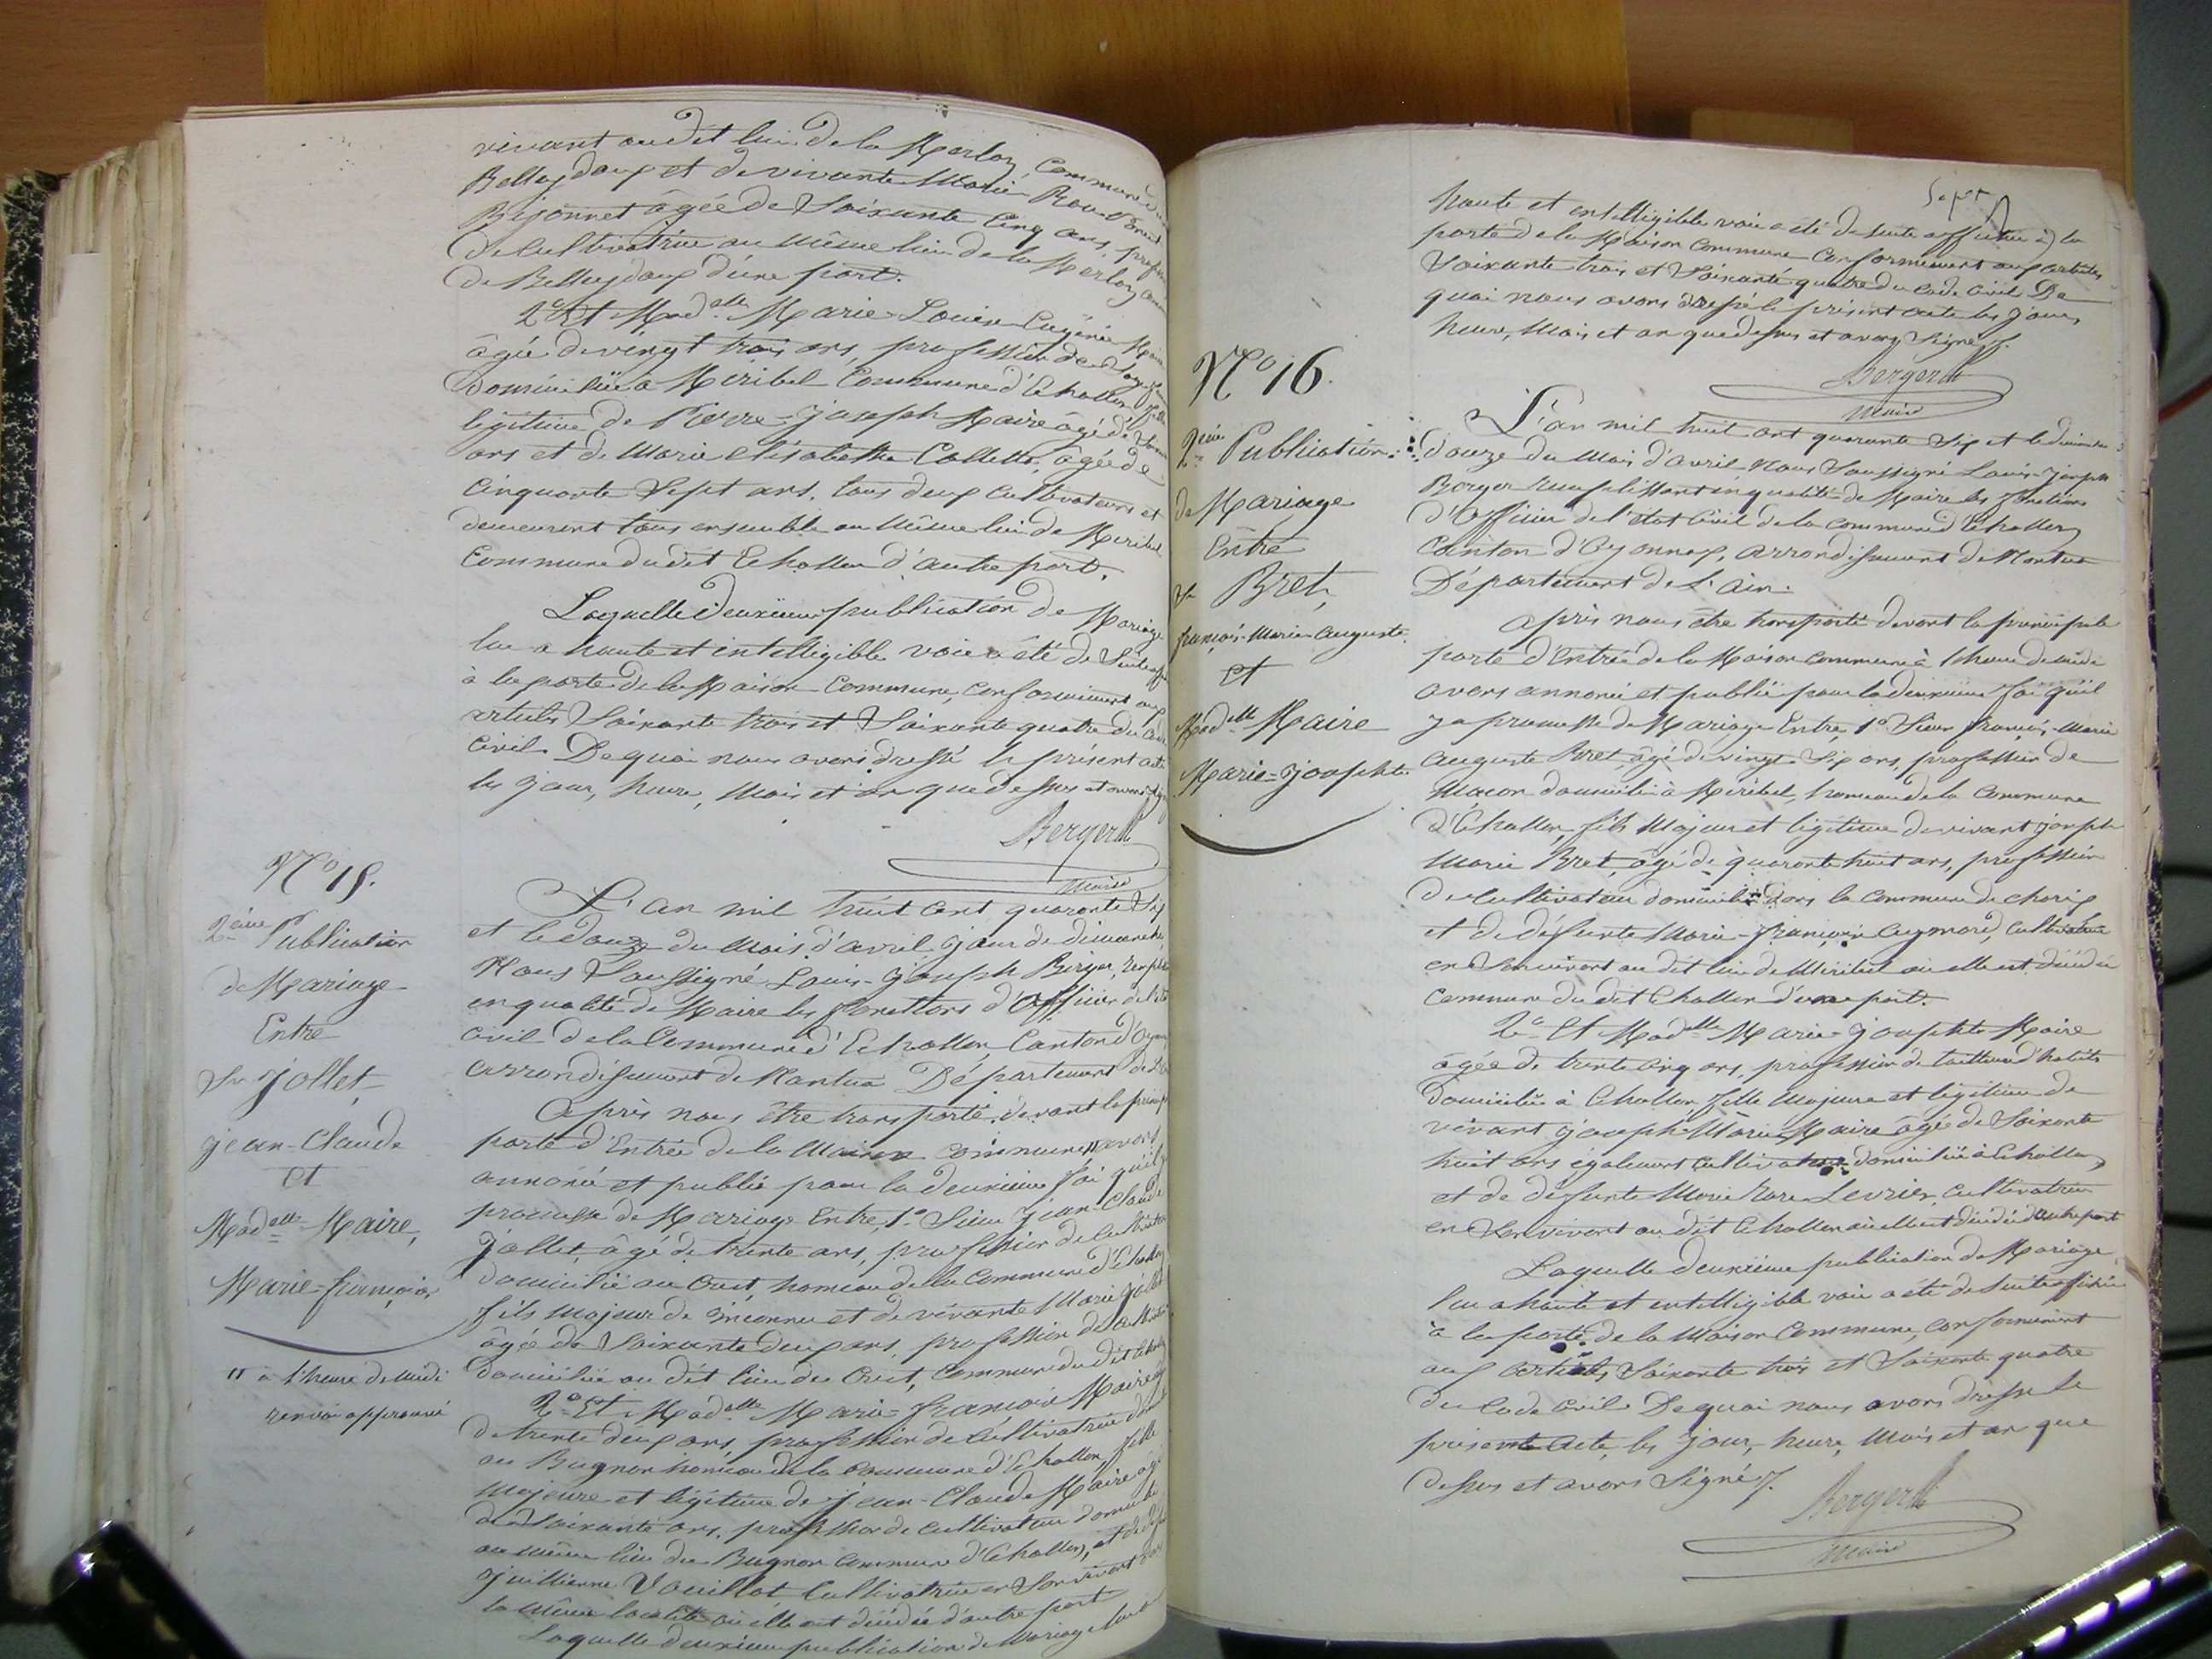 vivant au dit lieu de la Merloz, Commune de
Belleydoux et de vivante Marie
âgée de Soixante Cinq ans, profession
de Cultivatrice au même lieu de la Merloz
de Belleydoux d'une part.
2º Et Mad.elle Marie-Louise-Eugénie Maire
âgée de vingt trois ans, profession de
domiciliée à Miribel Commune d'Echallon fille
légitime de Pierre-Joseph Maire âgé de
ans et de Marie Elisabeth Collette, âgée de
Cinquante Sept ans, tous deux Cultivateurs et
demeurant tous ensemble au même lieu de Miribel
Commune du dit Echallon d'autre part.
Laquelle deuxième publication de Mariage
lue a haute et intelligible voie a été de Suite
à la porte de la Maison Commune, Conformément aux
articles Soixante trois et Soixante quatre du Code
Civil. De quoi nous avons dressé le présent acte
les jour, heure, Mois et an que dessus et avons Signé
Berger
Maire
Nº 15.
2ème Publication
de Mariage
Entre
Sr Jollet,
Jean-Claude
Et
Madelle Maire,
Marie-françoise
" à l'heure de midi
renvoi approuvé
L'an mil huit cent quarante Six
et le douze du Mois d'avril jour de dimanche,
Nous Soussigné Louis-Joseph Berger,
en qualité de Maire les fonctions d'Officier de l'état
Civil de la Commune d'Echallon, Canton d'Oyonnax
arrondissement de Nantua Département de l'Ain
Après nous être transporté devant la principale
porte d'Entrée de la Maison Commune " avons
annoncé et publié pour la deuxième foi qu'il y a
promesse de Mariage Entre, 1º Sieur Jean-Claude
Jollet, âgé de trente ans, profession de Cultivateur
domicilié au Cret, hameau de la Commune d'Echallon
fils Majeur de inconnu et de vivante Marie Jollet
âgée de Soixante deux ans, profession de Cultivatrice
domiciliée au dit lieu du Cret, Commune du dit Echallon
2º Et Madelle Marie-françoise Maire âgée
de trente deux ans, profession de Cultivatrice
au Bugnon hameau de la Commune d'Echallon, fille
Majeure et légitime de Jean-Claude Maire âgé
de Soixante ans, profession de Cultivateur domicilié
au même lieu du Bugnon Commune d'Echallon, et de
Juillienne Vouillot Cultivatrice en Son vivant dans
la même localité où elle est décédée d'autre part
Laquelle deuxième publication de Mariage lue a
Sept
haute et intelligible voie a été de Suite affichée à la
porte de la Maison Commune Conformément aux articles
Soixante trois et Soixante quatre du Code Civil De
quoi nous avons dressé le présent acte les jour,
heure, Mois et an que dessus et avons Signé.
Berger
Maire
Nº 16.
2ème Publication
de Mariage
Entre
Sr Bret,
françois-Marie-Auguste
Et
Madelle Maire
Marie-Josephte
L'an mil huit cent quarante Six et le dimanche
douze du Mois d'avril Nous Soussigné Louis-Joseph
Berger remplissant en qualité de Maire les fonctions
d'Officier de l'état Civil de la Commune d'Echallon
Canton d'Oyonnax, arrondissement de Nantua
Département de l'Ain.
Après nous être transporté devant la principale
porte d'Entrée de la Maison Commune à l'heure de midi
avons annoncé et publié pour la deuxième foi qu'il
y a promesse de Mariage Entre, 1º Sieur françois-Marie
Auguste Bret, âgé de vingt-Six ans, profession de
Macon domicilié à Miribel, hameau de la Commune
d'Echallon, fils Majeur et légitime de vivant Joseph
Marie Bret, âgé de quarante huit ans, profession
de Cultivateur domicilié dans la Commune de Charix
et de défunte Marie-françoise Aymard, Cultivatrice
en Son vivant au dit lieu de Miribel où elle est décédée
Commune du dit Echallon d'une part.
2º Et Madelle Marie-Josephte Maire
âgée de trente Cinq ans, profession de tailleuse d'habits
domiciliée à Echallon, fille Majeure et légitime de
vivant Joseph-Marie Maire âgé de Soixante
huit ans également Cultivateur domicilié à Echallon,
et de défunte Marie Rose Levrier, Cultivatrice
en Son vivant au dit Echallon où elle est décédée d'autre part
Laquelle deuxième publication de Mariage
lue a haute et intelligible voie a été de Suite affichée
à la porte de la Maison Commune, Conformément
aux articles Soixante trois et Soixante quatre
du Code Civil. De quoi nous avons dressé le
présent acte, les jour, heure, Mois et an que
dessus et avons Signé.
Berger
Maire